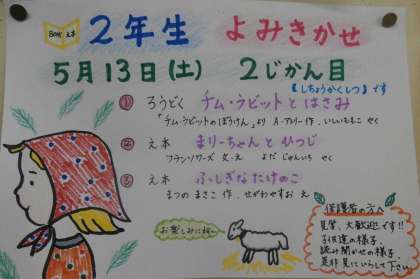 BOOK えホン
2年生 よみきかせ
5月13日(土) 2じかん目
【しちょうかくしつ】です
① ろうどく チム・ラビットとはさみ
「チム・ラビットのぼうけん」より A・アトリー作、いしいももこ やく
② え本 まりーちゃんと ひつじ
フランソワーズ 文・え よだ じゅんいち やく
③ え本 ふしぎなたけのこ
まつの まさこ 作、せがわやすお え
お楽しみに☆〜
保護者の方へ
見学、大歓迎です!!
子供達の様子、
読み聞かせの様子、
是非見にいらして下さい